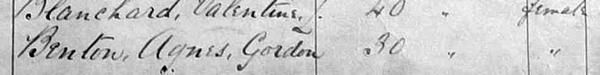 Blanchard, Valentine, J. 40 " female
Benton, Agnes, Gordon 30 " "